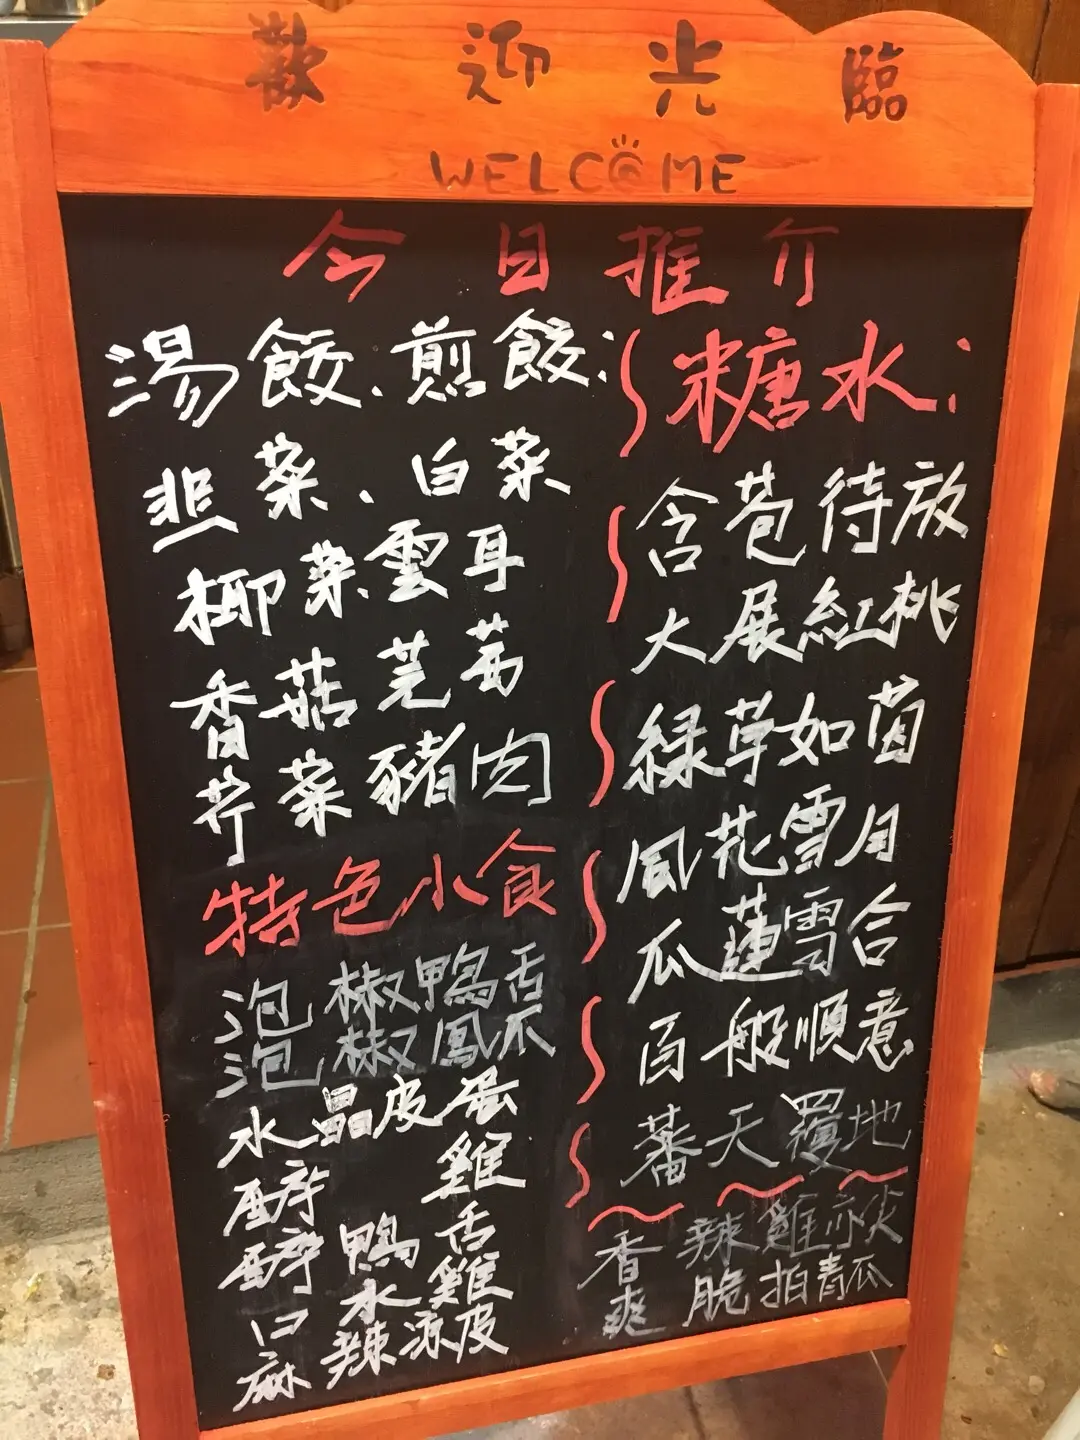 歡迎光臨
WELCOME
今日推介
湯餃、煎餃:
韮菜、白菜
椰菜、雲耳
香菇芫茜
芹菜豬肉
特色小食
泡椒鴨舌
泡椒鳳爪
水晶皮蛋
醉雞
醉鴨舌
口水雞
麻辣涼皮
糖水:
含苞待放
大展紅桃
綠草如茵
風花雪月
瓜蓮雪合
百般順意
蕃天覆地
香辣雞亦尖
爽脆拍青瓜